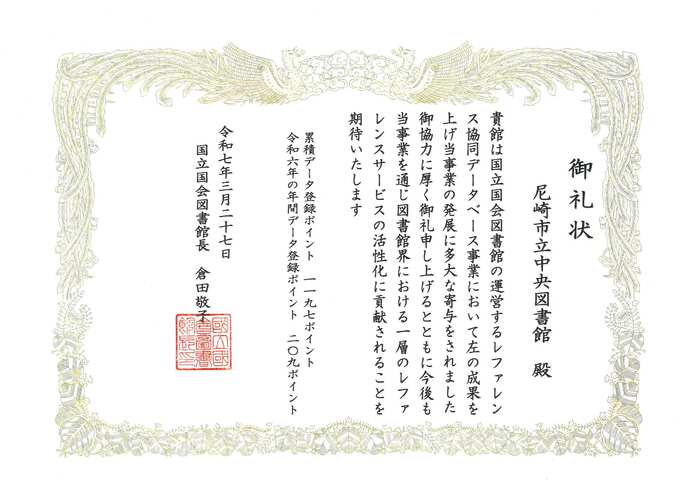 御礼状
尼崎市立中央図書館 殿
貴館は国立国会図書館の運営するレファレン
ス協同データベース事業において左の成果を
上げ当事業の発展に多大な寄与をされました
御協力に厚く御礼申し上げるとともに今後も
当事業を通じ図書館界における一層のレファ
レンスサービスの活性化に貢献されることを
期待いたします
累積データ登録ポイント 一一九七ポイント
令和六年の年間データ登録ポイント 二〇九ポイント
令和七年三月二十七日
国立国会図書館長 倉田敬子